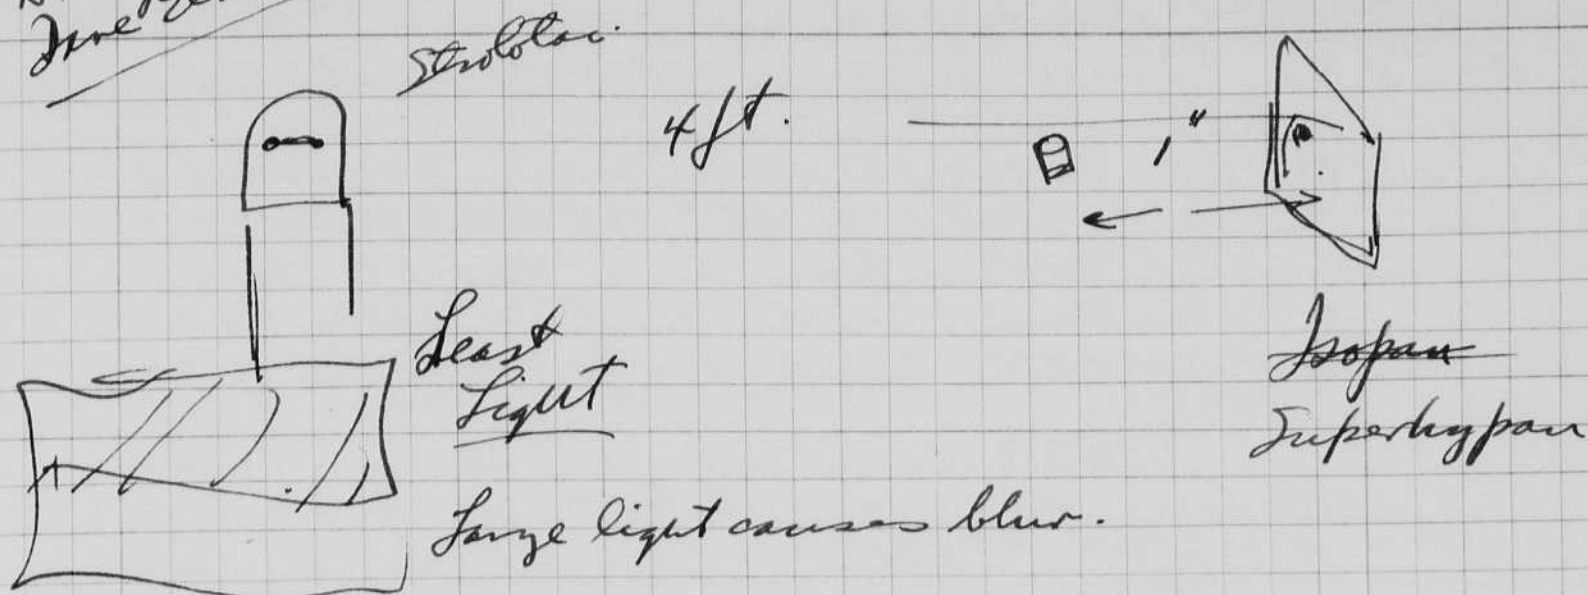 Strobotac.
4 ft.
1"
Least
Light
Isopan
Superhypan
Large light causes blur.